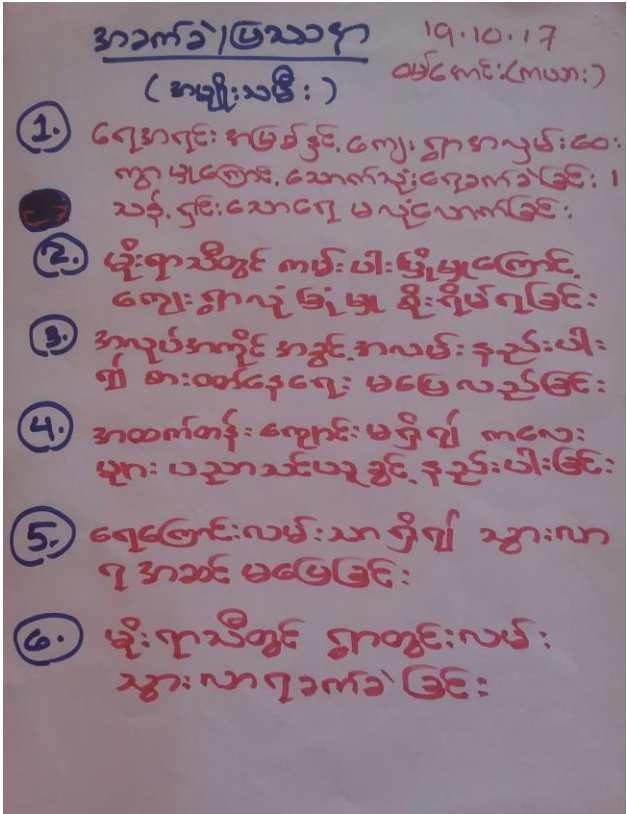 အခက်ခဲ/ပြဿနာ
19.10.17
(အမျိုးသမီး)
ဝမ်ကောင်း(ကယား)
1. ရေအရင်းအမြစ်နှင့် ကျေးရွာအလှမ်းဝေး
ကွာမှုကြောင့် သောက်သုံးရေခက်ခဲခြင်း ၊
သန့်ရှင်းသောရေ မလုံလောက်ခြင်း
2. မိုးရာသီတွင် ကမ်းပါးပြိုမှုကြောင့်
ကျေးရွာလုံခြုံမှု စိုးရိမ်ရခြင်း
3. အလုပ်အကိုင် အခွင့်အလမ်းနည်းပါး
၍ စားဝတ်နေရေး မပြေလည်ခြင်း
4. အထက်တန်းကျောင်းမရှိ၍ ကလေး
များ ပညာသင်ယူခွင့် နည်းပါးခြင်း
5. ရေကြောင်းလမ်းသာရှိ၍ သွားလာ
ရ အဆင်မပြေခြင်း
6. မိုးရာသီတွင် ရွာတွင်းလမ်း
သွားလာရခက်ခဲခြင်း